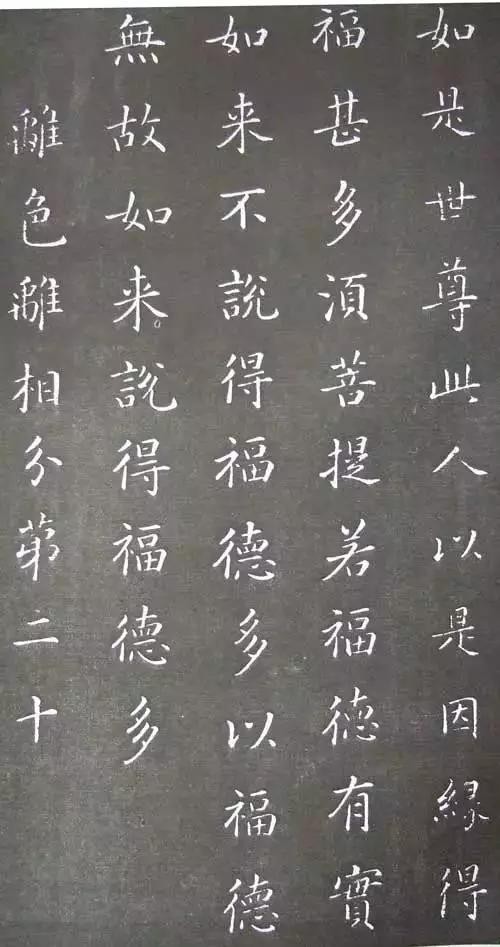 如是世尊此人以是因緣得
福甚多須菩提若福德有實
如来不說得福德多以福德
無故如来說得福德多
離色離相分第二十